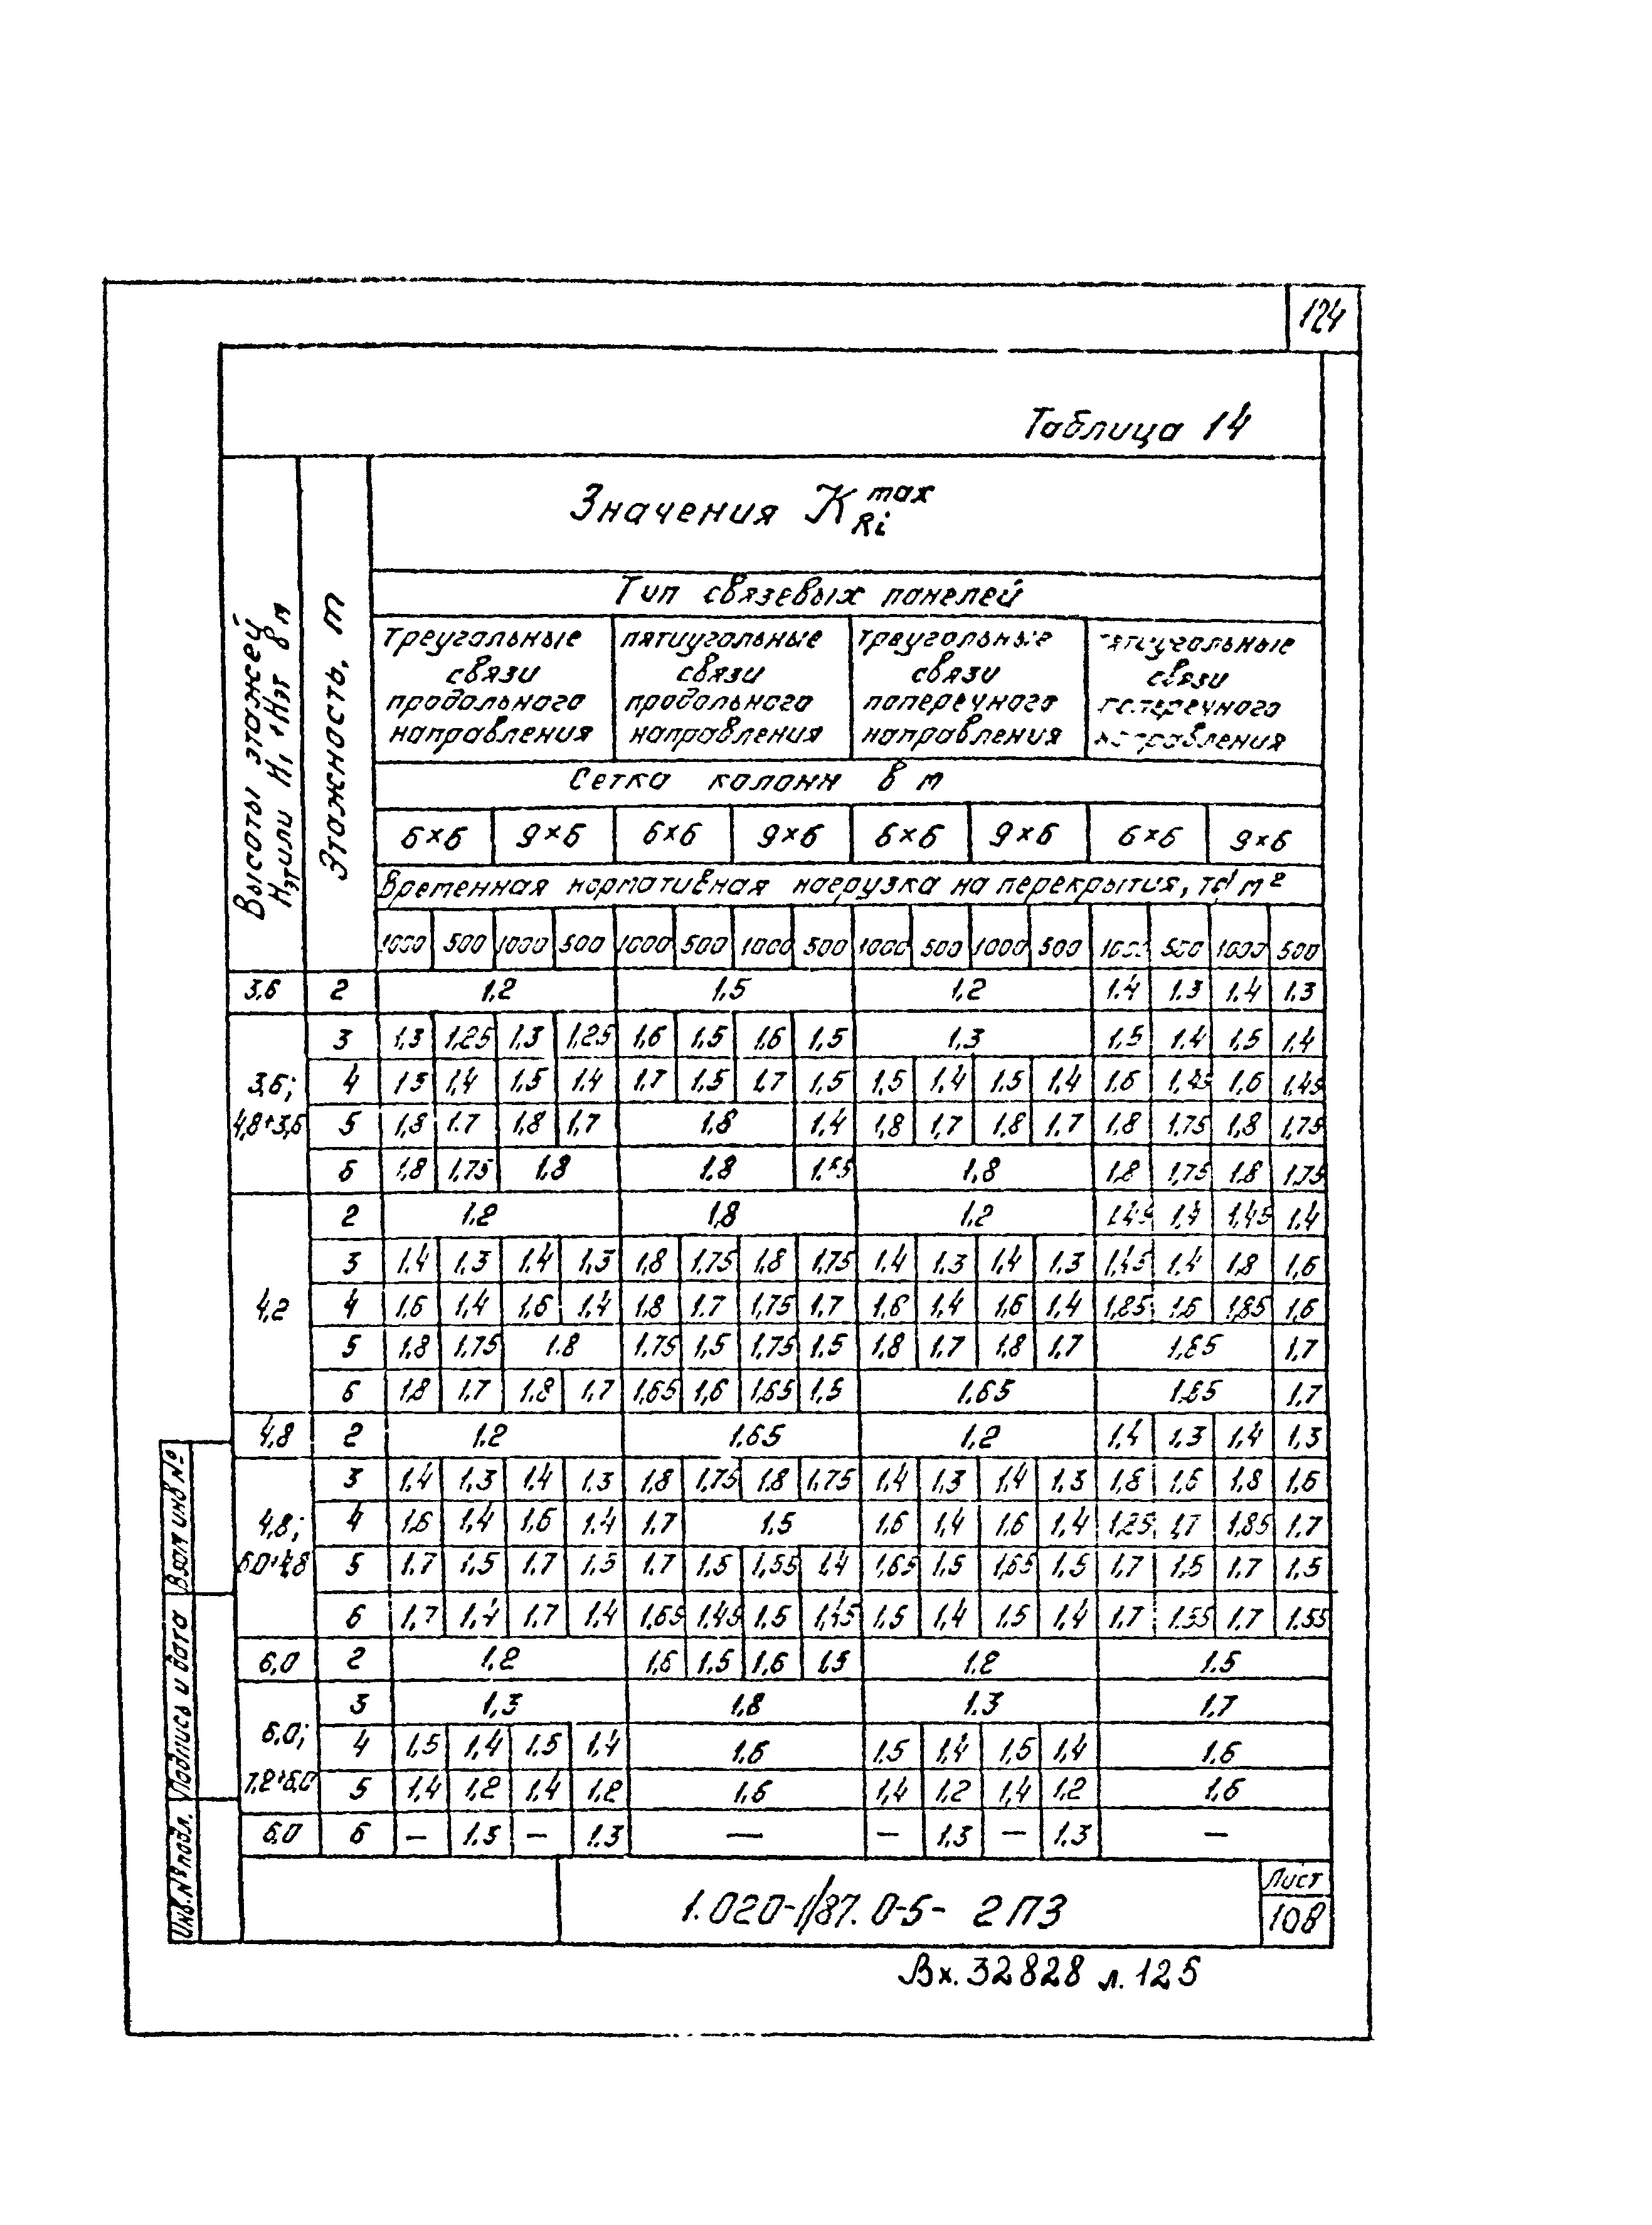 124
Таблица 14
Значения K max Ri
Высоты этажей
Нэт или Н1 + Нэт в м
Этажность, m
Тип связевых панелей
треугольные связи продольного направления | пятиугольные связи продольного направления | треугольные связи поперечного направления | пятиугольные связи поперечного направления
Сетка колонн в м
6×6 | 9×6 | 6×6 | 9×6 | 6×6 | 9×6 | 6×6 | 9×6
Временная нормативная нагрузка на перекрытия,
1000 | 500 | 1000 | 500 | 1000 | 500 | 1000 | 500 | 1000 | 500 | 1000 | 500 | 1000 | 500 | 1000 | 500
3,6 | 2 | 1,2 | 1,5 | 1,2 | 1.4 | 1.3 | 1.4 | 1.3
3,6; 4,8+3,6
3 | 1,3 | 1,25 | 1,3 | 1,25 | 1,6 | 1,5 | 1,6 | 1,5 | 1,3 | 1,5 | 1.4 | 1,5 | 1,4
4 | 1,5 | 1,4 | 1,5 | 1.4 | 1.7 | 1,5 | 1,7 | 1,5 | 1,5 | 1,4 | 1.5 | 1,4 | 1.6 | 1,45 | 1,6 | 1,45
5 | 1,8 | 1.7 | 1,8 | 1,7 | 1,8 | 1,4 | 1,8 | 1,7 | 1,8 | 1.7 | 1,8 | 1,75 | 1,8 | 1,75
6 | 1,8 | 1,75 | 1.8 | 1.8 | 1,8 | 1,8 | 1,75 | 1.8 | 1,75
4,2
2 | 1.2 | 1,8 | 1.2 | 1,45 | 1,4 | 1,45 | 1.4
3 | 1.4 | 1,3 | 1.4 | 1,3 | 1,8 | 1,75 | 1,8 | 1,75 | 1.4 | 1.3 | 1,4 | 1.3 | 1,45 | 1.4 | 1,8 | 1,6
4 | 1.6 | 1,4 | 1,6 | 1.4 | 1,8 | 1.7 | 1,75 | 1.7 | 1.6 | 1,4 | 1,6 | 1,4 | 1,85 | 1.6 | 1,85 | 1,6
5 | 1.8 | 1.75 | 1.8 | 1.75 | 1,5 | 1,75 | 1.5 | 1,8 | 1.7 | 1,8 | 1,7 | 1,7
6 | 1,8 | 1,7 | 1,8 | 1,7 | 1,65 | 1,6 | 1,65 | 1,5 | 1.65 | 1,7
4,8 | 2 | 1.2 | 1.65 | 1,2 | 1,4 | 1,3 | 1,4 | 1,3
4,8; 6.0+4,8
3 | 1,4 | 1,3 | 1,4 | 1,3 | 1,8 | 1,75 | 1.8 | 1,75 | 1,4 | 1,3 | 1,4 | 1,3 | 1,8 | 1,6 | 1,8 | 1,6
4 | 1.6 | 1,4 | 1.6 | 1.4 | 1.7 | 1.5 | 1.6 | 1,4 | 1,6 | 1,4 | 1,7 | 1,85 | 1,7
5 | 1.7 | 1,5 | 1.7 | 1.5 | 1.7 | 1.5 | 1,55 | 1,4 | 1,65 | 1.5 | 1,65 | 1,5 | 1,7 | 1.5 | 1.7 | 1,5
6 | 1.7 | 1.4 | 1.7 | 1.4 | 1,65 | 1.45 | 1.5 | 1,45 | 1.5 | 1,4 | 1.5 | 1.4 | 1.7 | 1.55 | 1.7 | 1.55
6,0 | 2 | 1,2 | 1,6 | 1,5 | 1,6 | 1,5 | 1.2 | 1.5
6,0; 7,2+6,0
3 | 1,3 | 1,8 | 1.3 | 1.7
4 | 1,5 | 1,4 | 1.5 | 1.4 | 1.6 | 1.5 | 1,4 | 1,5 | 1.4 | 1.6
5 | 1,4 | 1,2 | 1,4 | 1,2 | 1.6 | 1,4 | 1.2 | 1,4 | 1.2 | 1.6
6.0 | 6 | – | 1.3 | – | 1.3 | — | – | 1.3 | – | 1.3 | –
Взам инв №
Подпись и дата
Инв. № подл.
1.020-1/87. 0-5- 2 ПЗ
Лист
108
Вх. 32828 л. 125